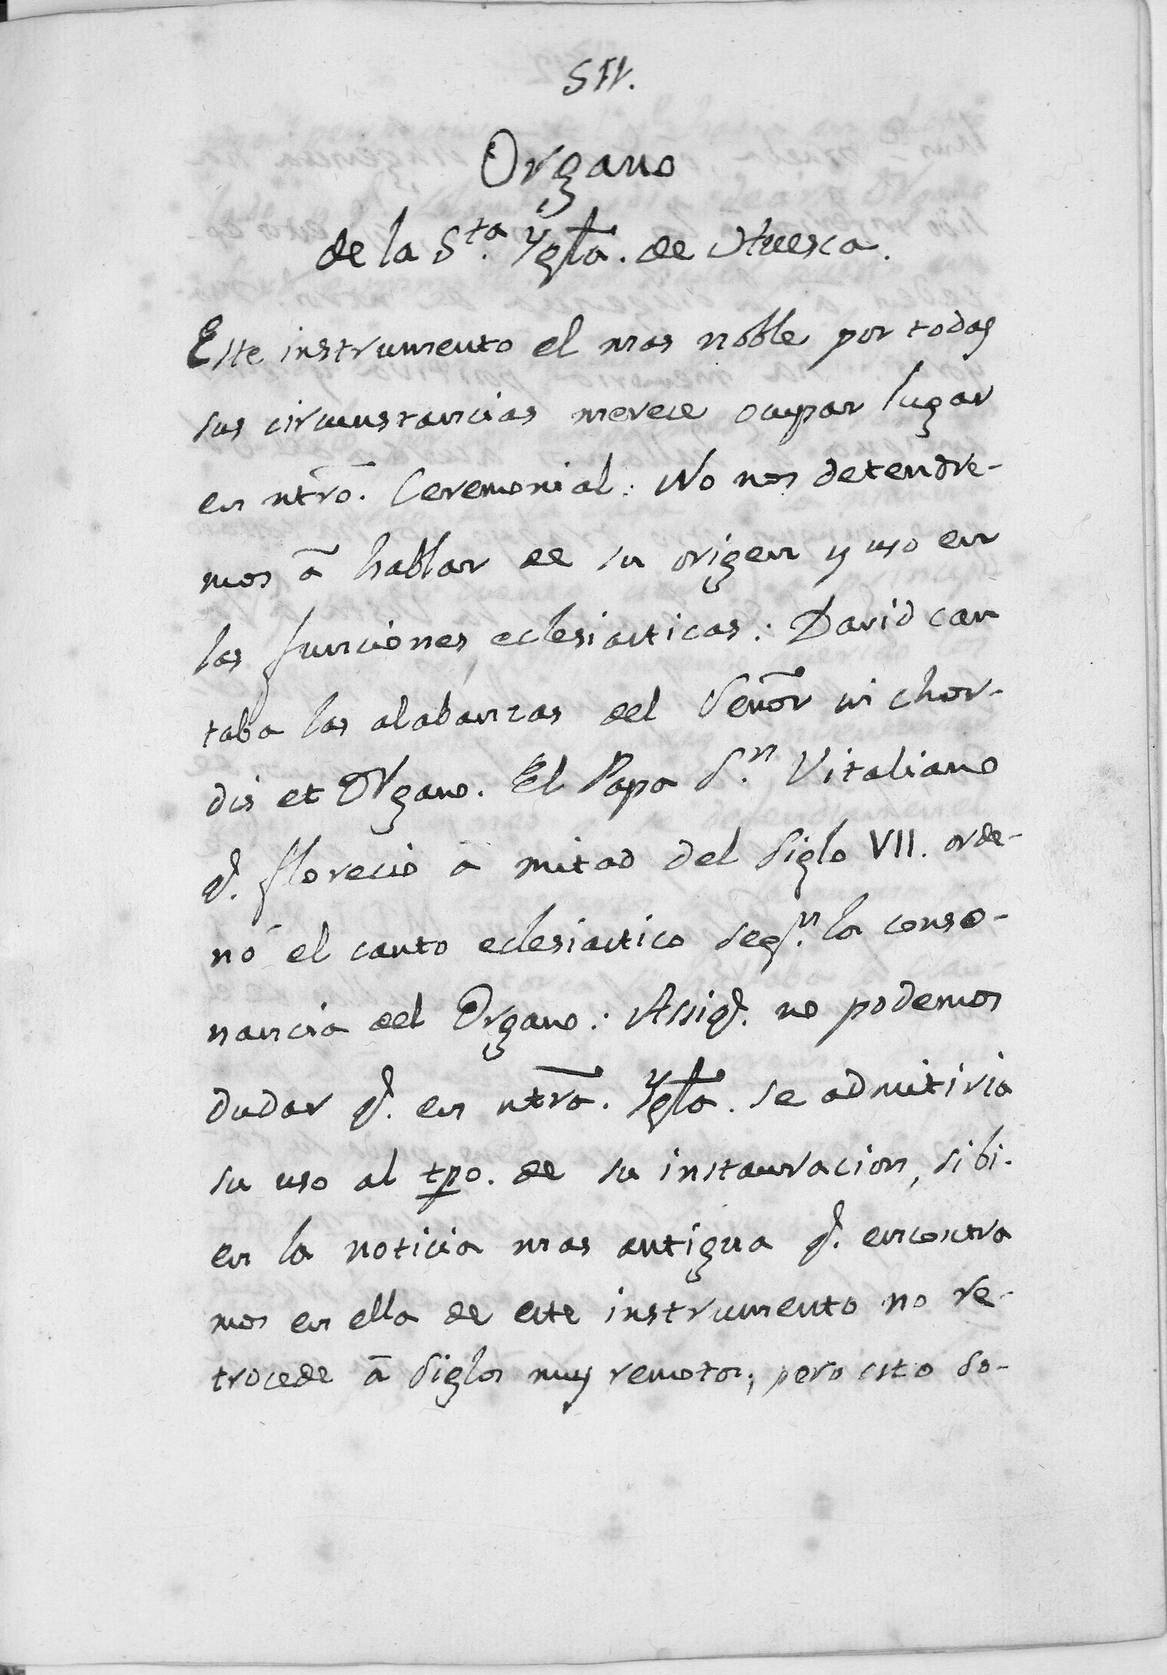 511.
Organo
de la S.ta Ygla. de Huesca.
Este instrumento el mas noble por todas
sus circunstancias merece ocupar lugar
en ntro. Ceremonial: No nos detendre-
mos à hablar de su origen y uso en
las funciones eclesiasticas: David can
taba las alabanzas del Señor in chor-
dis et Organo. El Papa S.n Vitaliano
q. florecio à mitad del Siglo VII. orde-
nó el canto eclesiastico seg.n la conso-
nancia del Organo: Assiq. no podemos
dudar q. en ntra. Ygla. se admitiria
su uso al tpo. de su instauracion, si bi-
en la noticia mas antigua q. encontra
mos en ella de este instrumento no re-
trocede à Siglos muy remotos; pero esto so-